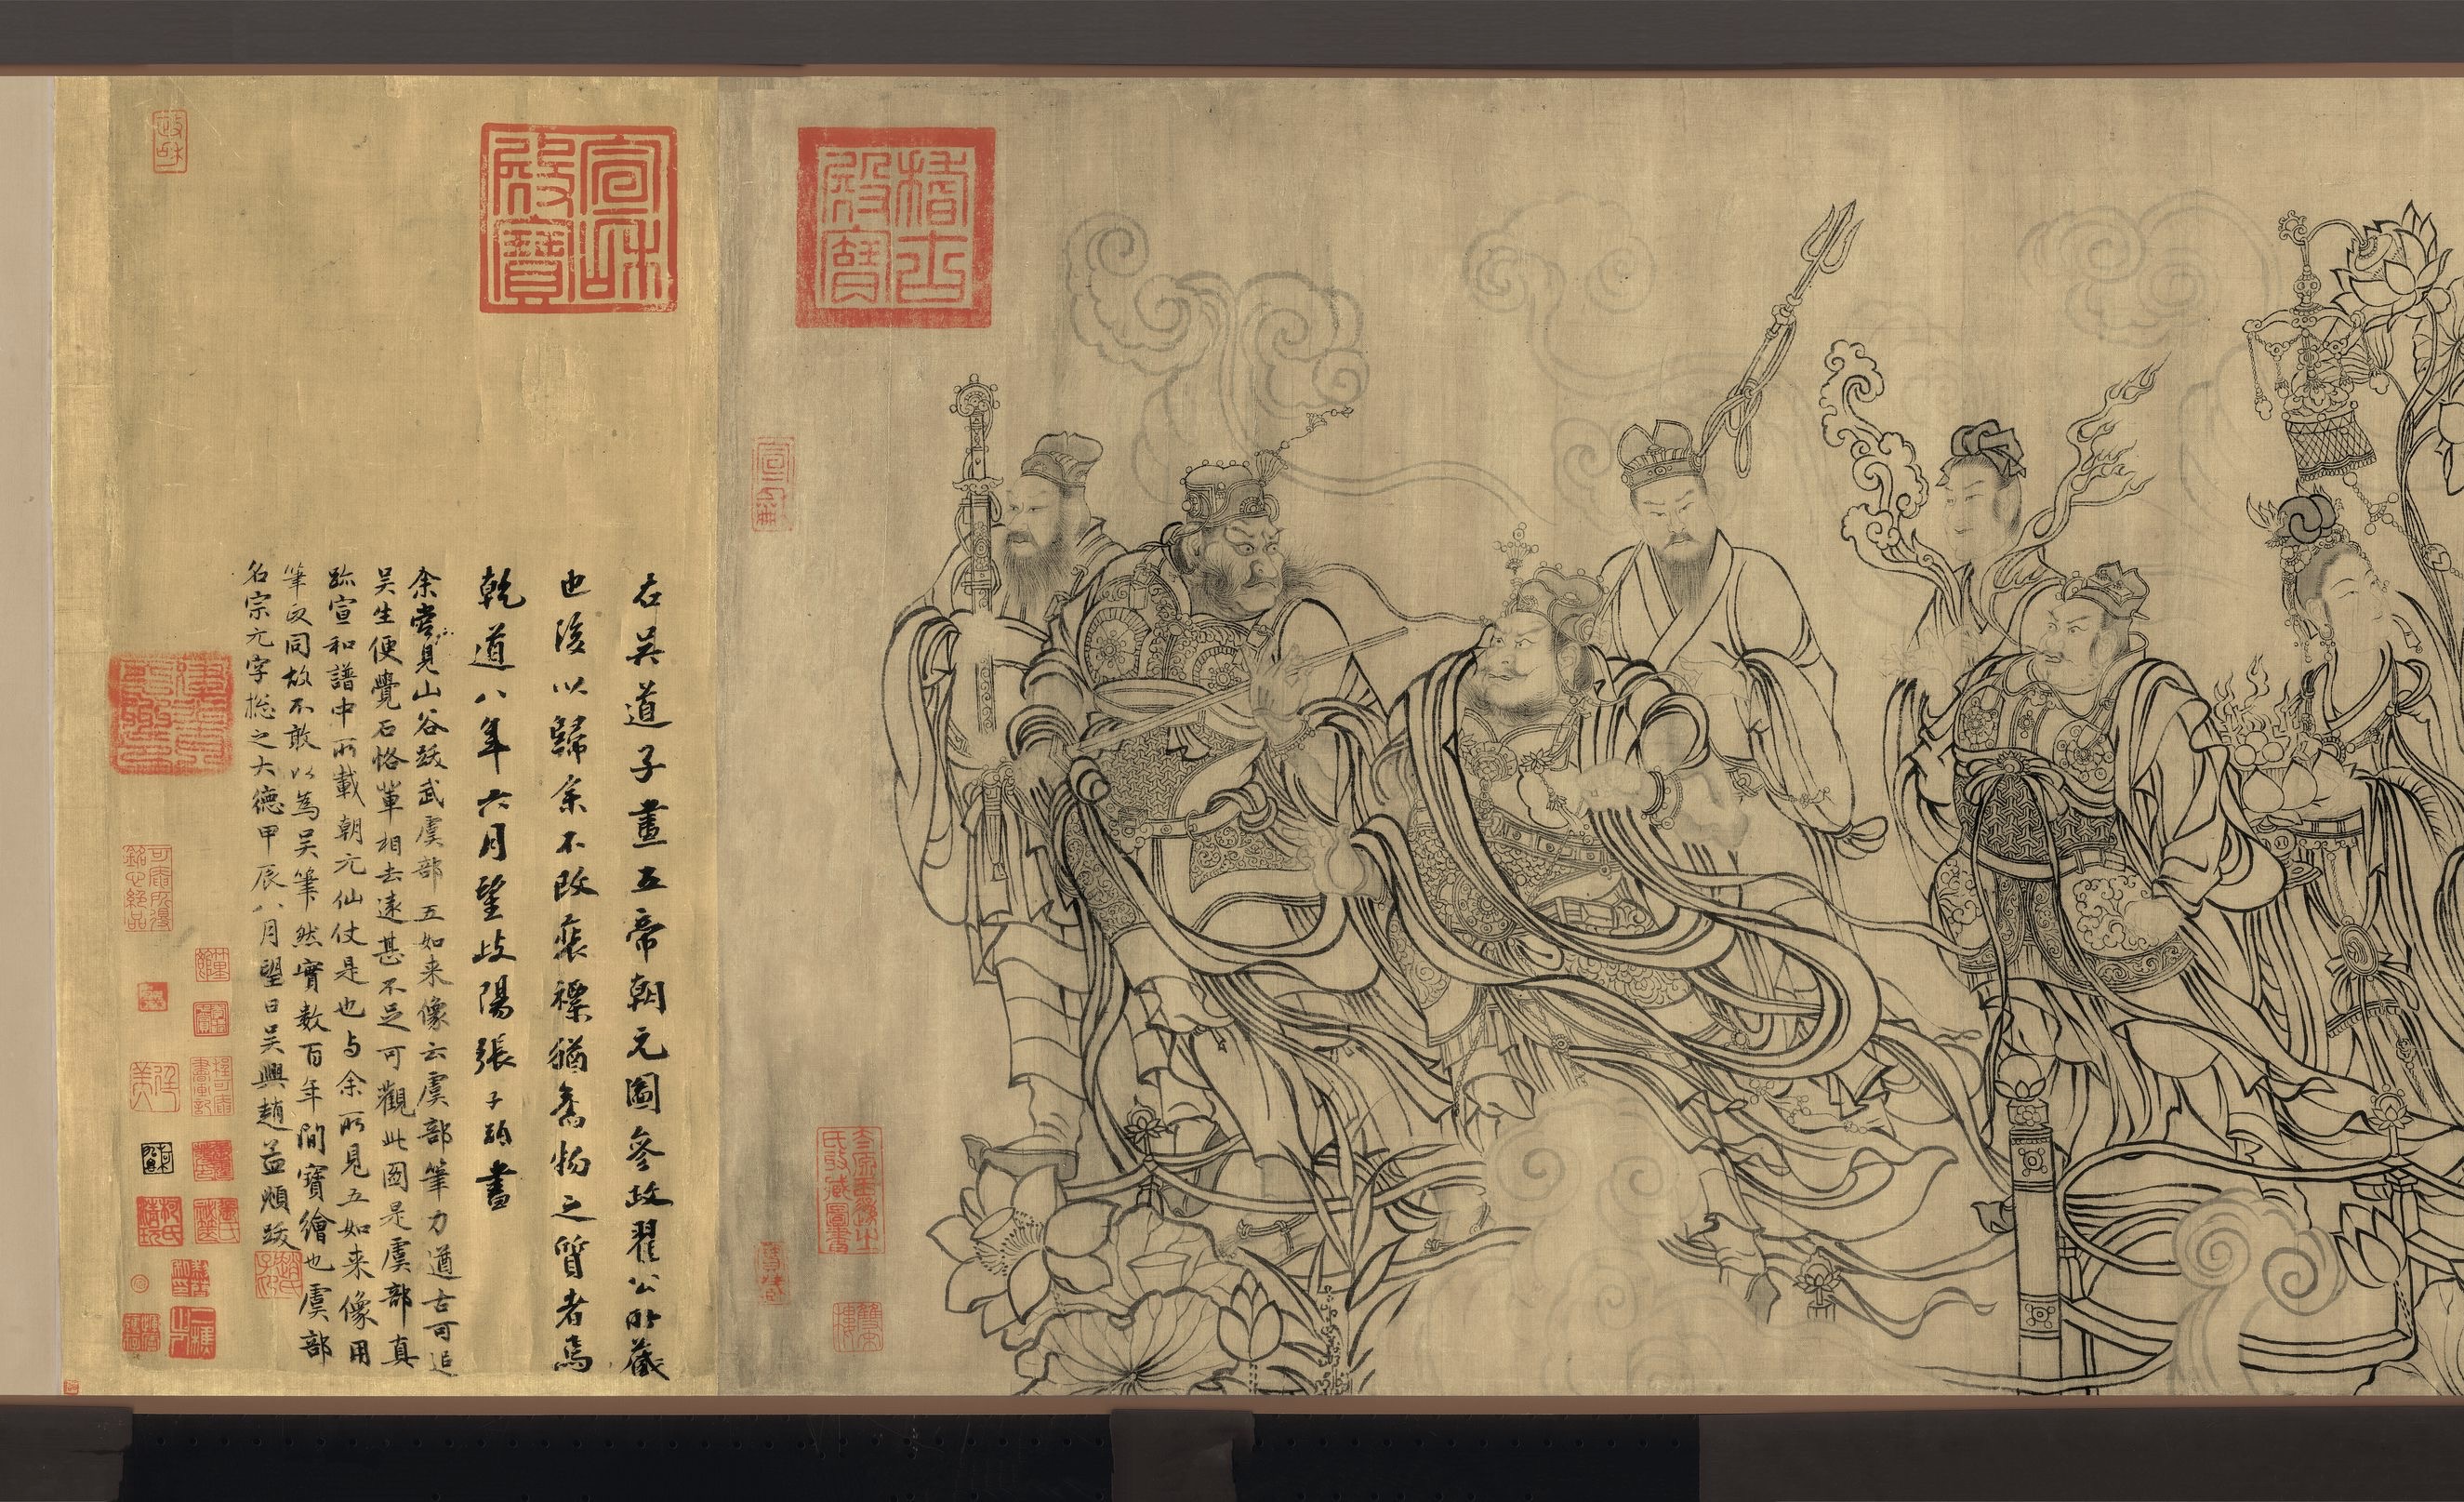 稽古殿寶
宣和殿寶
右吳道子畫五帝朝元圖參政翟公所藏
也後以歸余不改裝褾猶舊物之質者焉
乾道八年六月望歧陽張子珉書
余嘗見山谷跋武虞部五如来像云虞部筆力遒古可追
吳生便覺石恪軰相去遠甚不足可觀此圖是虞部真
跡宣和譜中所載朝元仙仗是也与余所見五如来像用
筆政同故不敢以為吳筆然實數百年間寶繪也虞部
名宗元字摠之大德甲辰八月望日吳興趙孟頫跋
趙氏子昂
政和